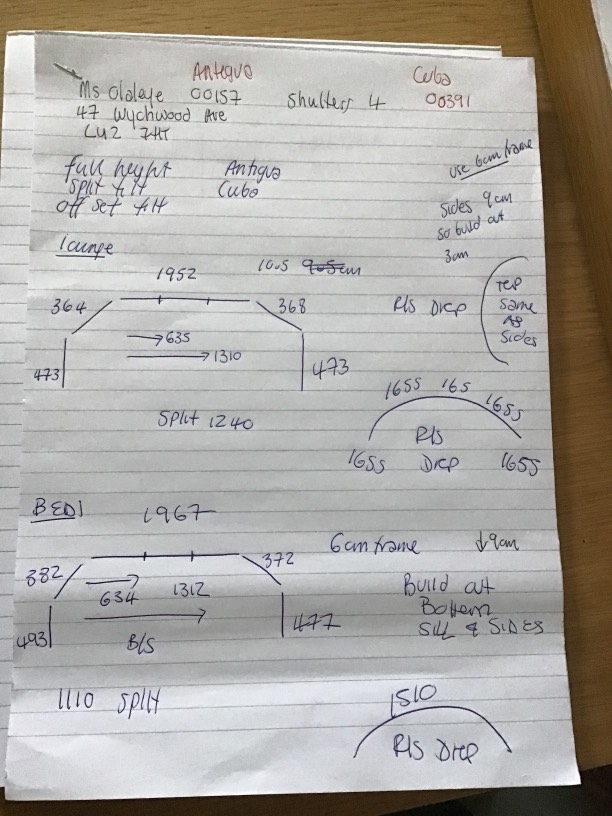 Antigua Cuba
Ms Olaleye 00157 Shutters 4 00391
47 Wychwood Ave
LU2 7HT
full height Antigua
Split tilt Cuba
off set tilt
use 6cm frame
Sides 9cm
so build out
3cm
lounge
1952 1005 905cm
364 368
R/S Drop
TOP
Same
AS
Sides
635
1310
473 473
Split 1240
1655 165 1655
R/S
1655 Drop 1655
BED1 1967
6cm frame ↓9cm
382 372
634 1312
Build out
Bottom
SILL & SIDES
493 477
B/S
1110 split
1510
R/S Drop